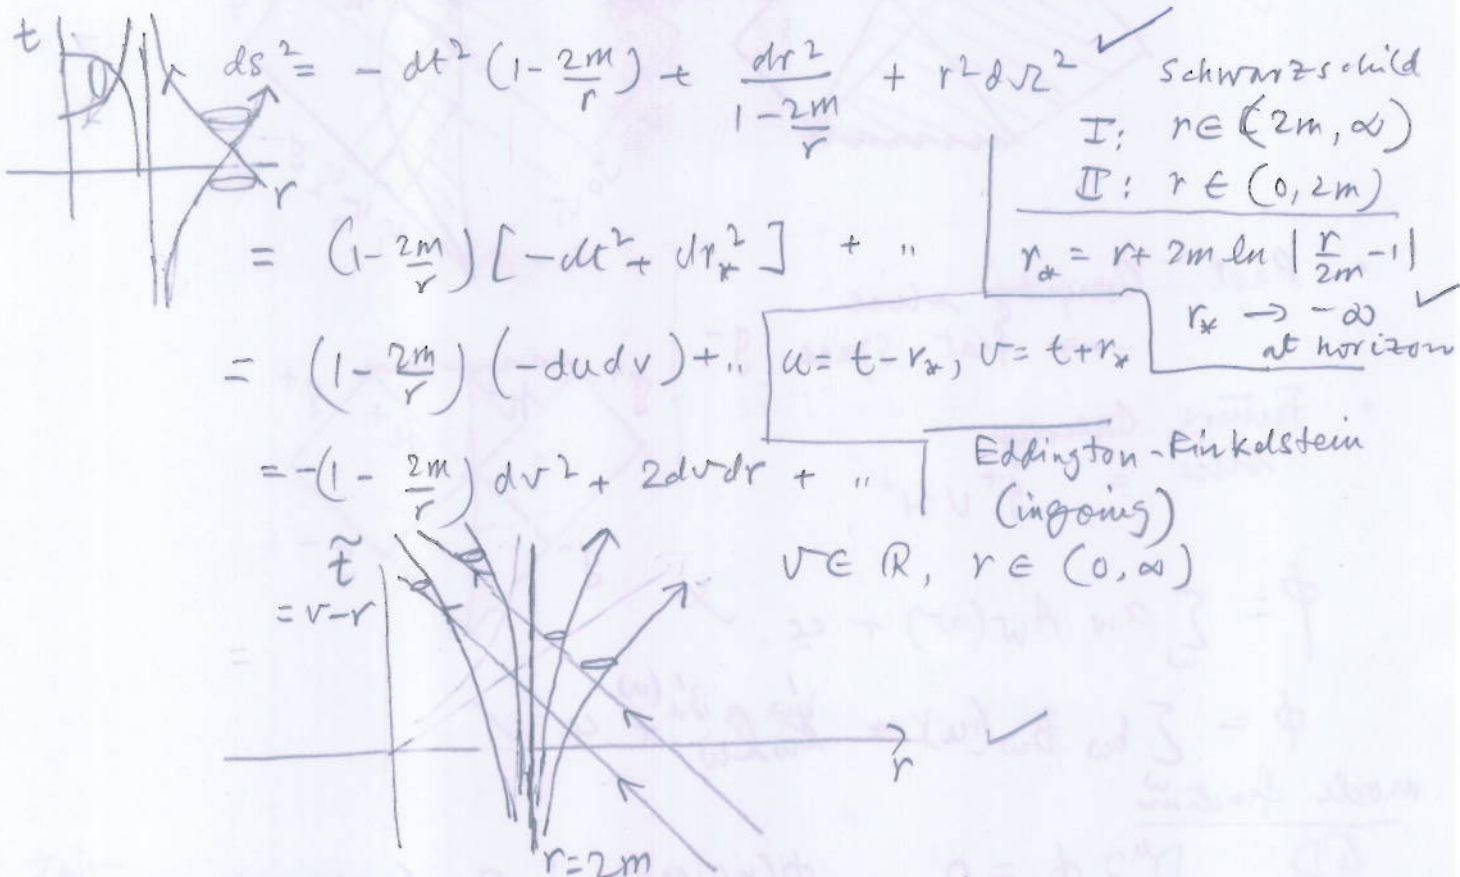 t
ds² = - dt² (1 - 2m/r) + dr²/(1 - 2m/r) + r² dΩ² ✓
Schwarzschild
I: r ∈ (2m, ∞)
II: r ∈ (0, 2m)
r
= (1 - 2m/r) [-dt² + dr*²] + ..
r* = r + 2m ln |r/2m - 1|
r* → -∞ ✓
at horizon
= (1 - 2m/r) (-du dv) + ..
u = t - r*, v = t + r*
= -(1 - 2m/r) dv² + 2dvdr + ..
Eddington-Finkelstein
(ingoing)
v ∈ ℝ, r ∈ (0, ∞)
t̃
= v - r
r ✓
r = 2m